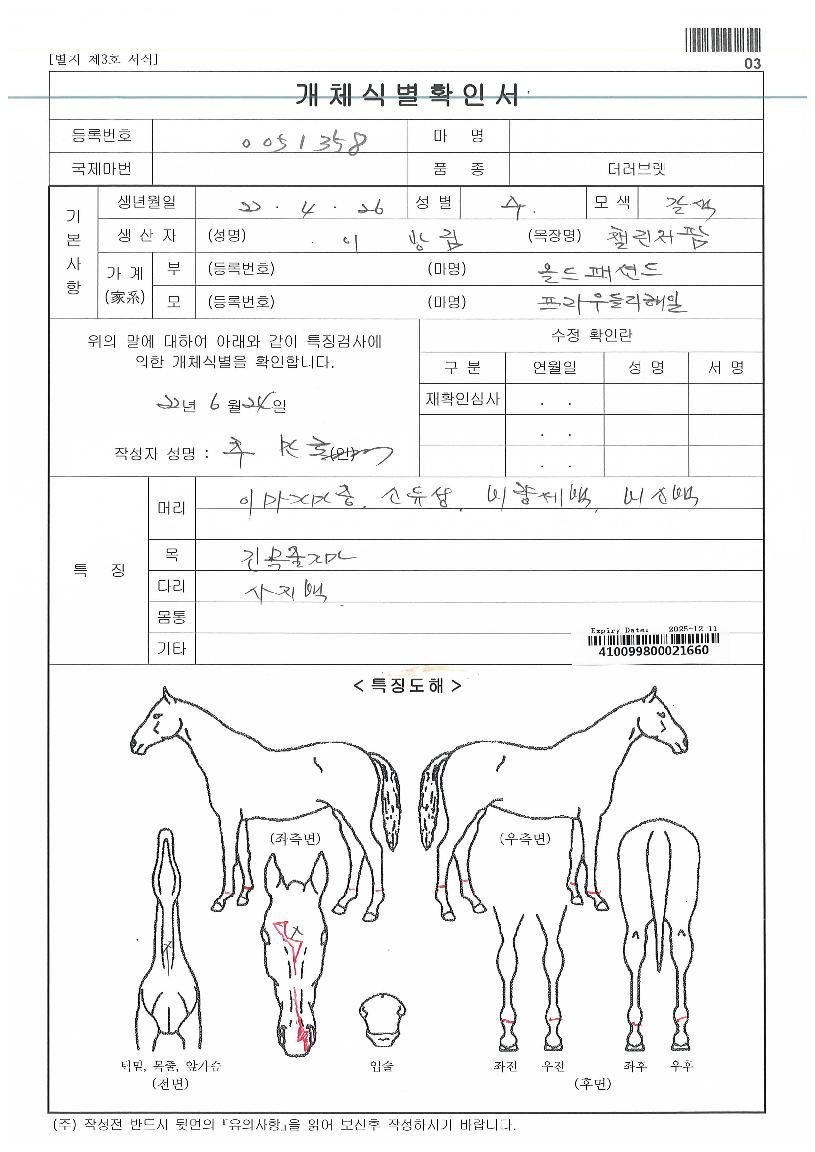 [별지 제3호 서식]
03
개체식별확인서
등록번호 0051358 마 명
국제마번 품 종 더러브렛
기본사항
생년월일 22 . 4 . 26 성 별 수. 모 색 갈색
생 산 자 (성명) 이 방림 (목장명) 챌린저팜
가 계 (家系) 부 (등록번호) (마명) 올드패션드
모 (등록번호) (마명) 프라우들리해일
위의 말에 대하여 아래와 같이 특징검사에
의한 개체식별을 확인합니다.
22년 6월 24일
작성자 성명 : (인)
수정 확인란
구 분 연월일 성 명 서 명
재확인심사 . .
. .
. .
특 징
머리 소유성. 비량세백, 비신백
목 긴목줄지마
다리 사지백
몸통
기타
Expiry Date: 2025-12-11
410099800021660
< 특징도해 >
(좌측면) (우측면)
턱밑, 목줄, 앞가슴 입술 좌전 우전 좌후 우후
(전면) (후면)
(주) 작성전 반드시 뒷면의 『유의사항』을 읽어 보신후 작성하시기 바랍니다.